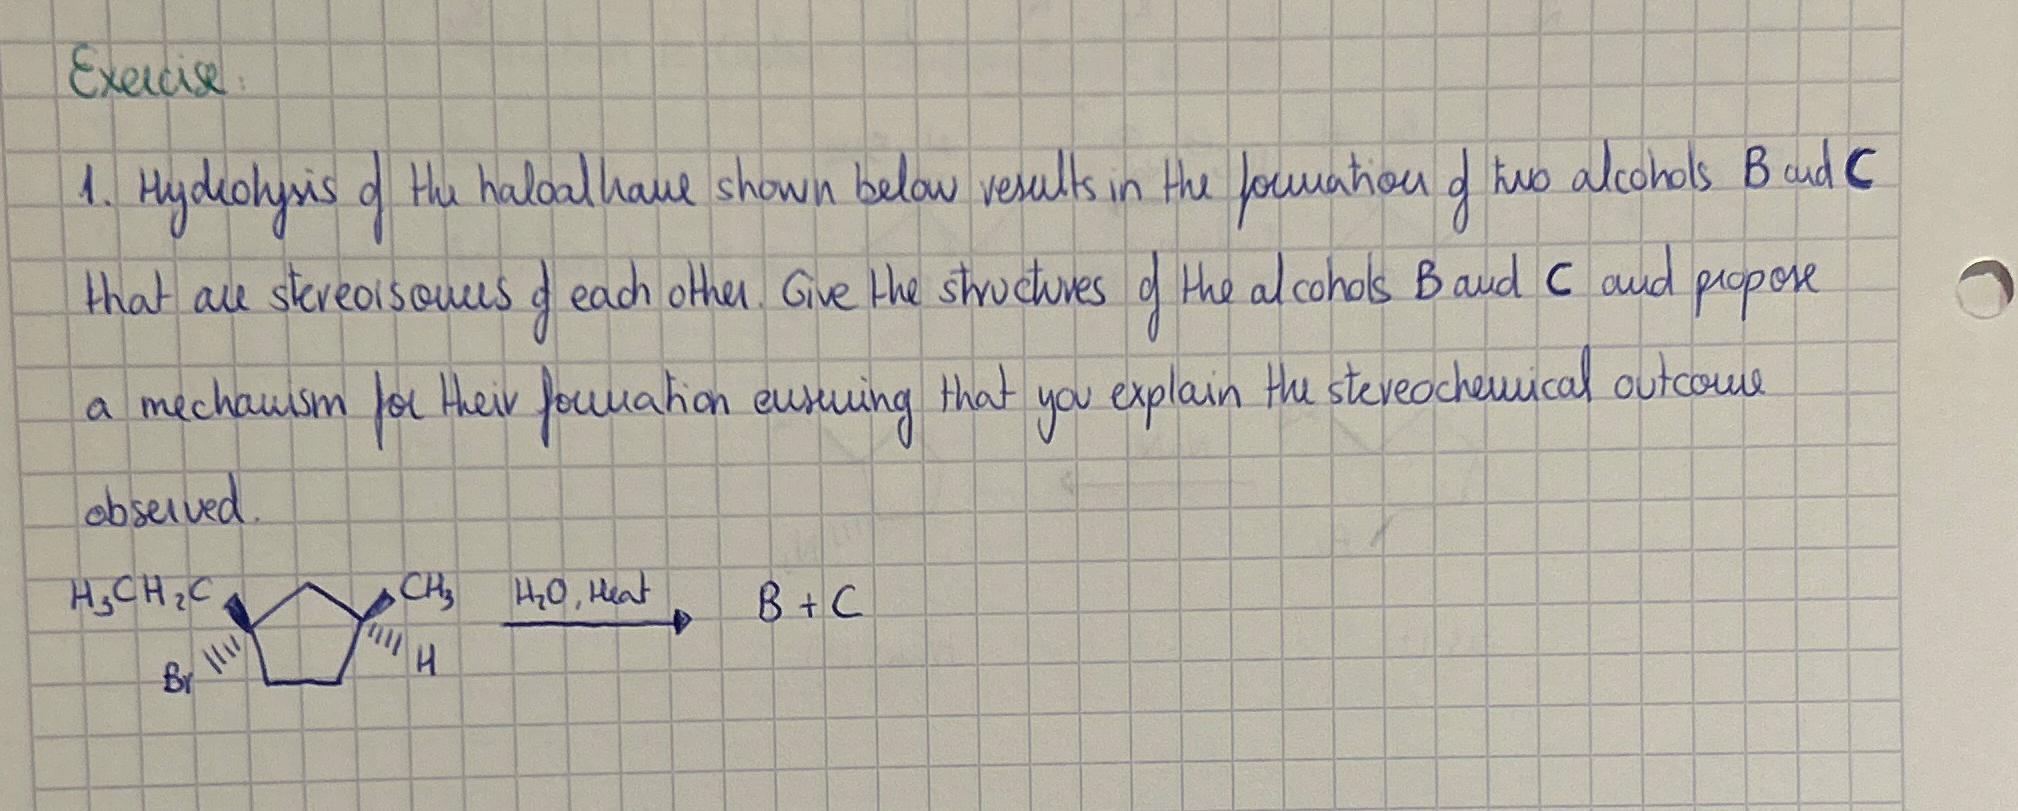 Exercise:
1. Hydrolysis of the haloalkane shown below results in the formation of two alcohols B and C
that are stereoisomers of each other. Give the structures of the alcohols B and C and propose
a mechanism for their formation ensuring that you explain the stereochemical outcome
observed.
H₃CH₂C CH₃ H₂O, Heat B + C
Br H